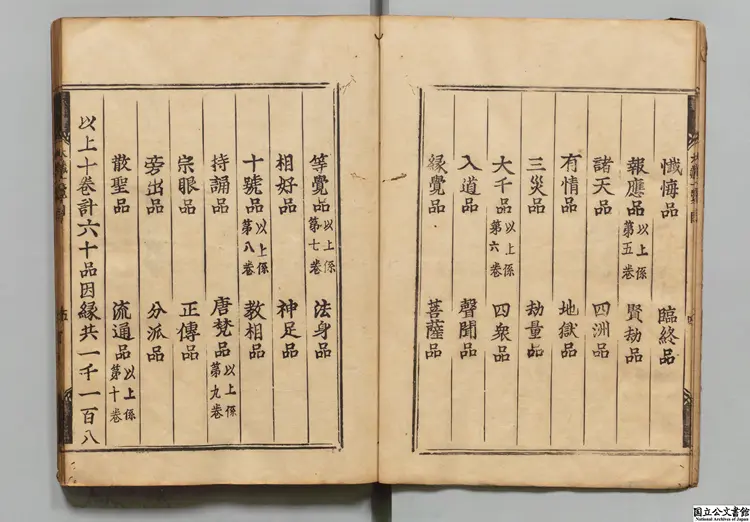 懺悔品 臨終品
報應品 以上係第五卷 賢劫品
諸天品 四洲品
有情品 地獄品
三災品 劫量品
大千品 以上係第六卷 四衆品
入道品 聲聞品
緣覺品 菩薩品
等覺品 以上係第七卷 法身品
相好品 神足品
十號品 以上係第八卷 教相品
持誦品 唐梵品 以上係第九卷
宗眼品 正傳品
旁出品 分派品
散聖品 流通品 以上係第十卷
以上十卷計六十品因緣共一千一百八
国立公文書館
National Archives of Japan